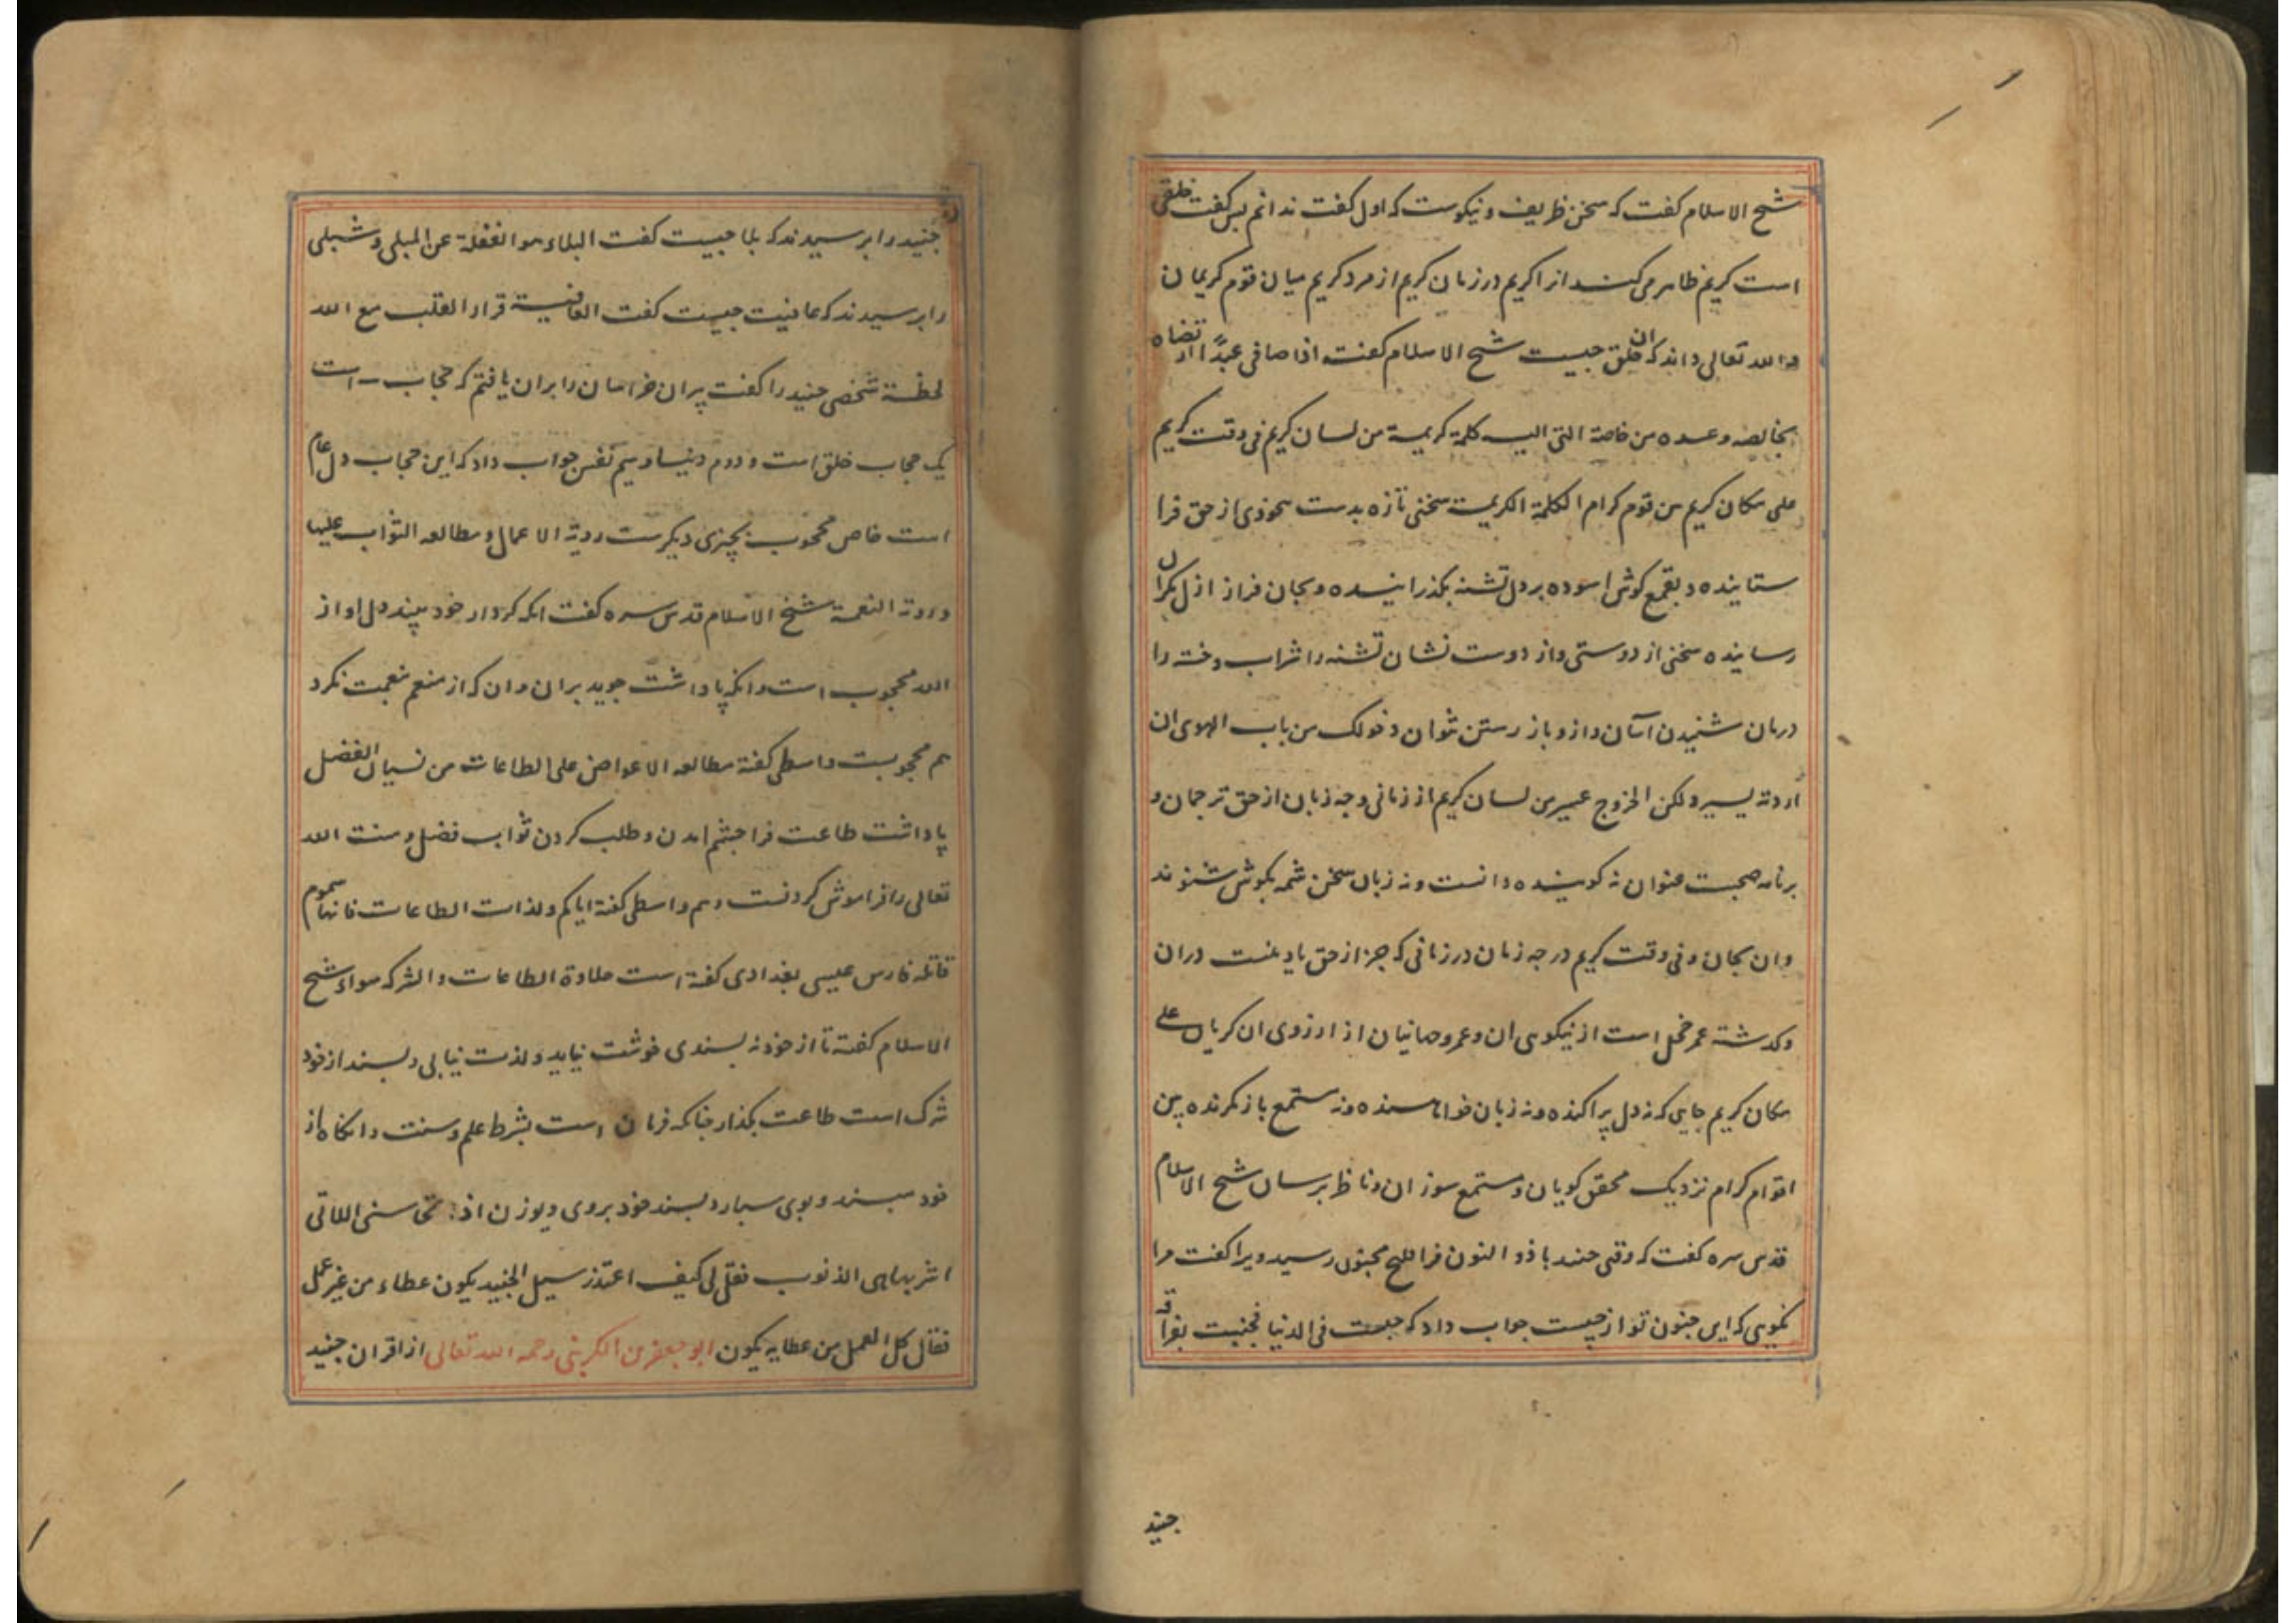 شیخ الاسلام گفت که سخن ظریف و نیکوست که اول گفت ندانم پس گفت خلقی
است کریم ظاهر می کند انرا کریم در زمان کریم از مرد کریم میان قوم کریمان
والله تعالی داند که ان خلق چیست شیخ الاسلام گفت اذا صافی عبدا ارتضاه
بخالصه وعده من خاصة التی الیه کلمة کریمة من لسان کریم فی وقت کریم
علی مکان کریم من قوم کرام الکلمة الکریمة سخنی تازه بدست از حق فرا
ستاینده و بقمع گوش اسوده بر دل تشنه بگذرانیده و بجان فراز ازل
رساینده سخنی از دوستی و از دوست نشان تشنه را شراب و خته را
درمان شنیدن آسان و ازو باز رستن نتوان دخولک من باب الهوی ان
اردته یسیر ولکن الخروج عسیر من لسان کریم از زبانی و چه زبان از حق ترجمان و
برنامه صحبت عنوان نه گوینده دانست و نه زبان سخن شمه بگوش شنوند
وان بجان و فی وقت کریم در چه زمان در زمانی که جز از حق یاد نست در ان
و گذشته عمر خجل است از نیکوی ان و عمر و جانیان از ارزوی ان گریان علی
مکان کریم جایی که نه دل پراکنده و نه زبان و نه مستمع باز نگرنده بین
اقوام کرام نزدیک محقق گویان و مستمع سوزان و ناظر شیخ الاسلام
قدس سره گفت که وقتی جنید با ذو النون فرا مجنون رسید ویرا گفت مرا
نگویی که این جنون تو از چیست جواب داد که حبست فی الدنیا فجننت بفراقه
جنید
جنید را پرسیدند که بلا چیست گفت البلاء هو الغفلة عن المبلی و شبلی
را پرسیدند که عافیت چیست گفت العافیة قرار القلب مع الله
لحظة شخصی جنید را گفت پیران خراسان را بران یافتم که حجاب است
یک حجاب خلق است و دوم دنیا و سیم نفس جواب داد که این حجاب دل عام
است خاص محجوب بچیزی دیگرست رویة الاعمال و مطالعه الثواب علیها
و رویة النعمة شیخ الاسلام قدس سره گفت انکه کردار خود بیند دل او از
الله محجوب است و انکه پاداشت جوید بران وان که از منعم بنعمت نگرد
هم محجوبست واسطی گفته مطالعه الاعواض علی الطاعات من نسیان الفضل
پاداشت طاعت فرا چشم امدن و طلب کردن ثواب فضل و منت الله
تعالی را فراموش کردنست و هم واسطی گفته ایاکم ولذات الطاعات فانها سموم
قاتله فارس عیسی بغدادی گفته است حلاوة الطاعات والشرک سواء شیخ
الاسلام گفته تا از خود نه پسندی خوشت نیاید و لذت نیابی و پسند از خود
شرک است طاعت بگذار چنانکه فرمان است بشرط علم و سنت وانگاه از
خود مپسند و بوی سپار و پسند خود بروی اذا محاسنی اللاتی
هی الذنوب فقل لی کیف اعتذر سیل الجنید یکون عطاء من غیر عمل
فقال کل العمل من عطایه یکون ابو جعفر من الکرینی رحمه الله تعالی از اقران جنید